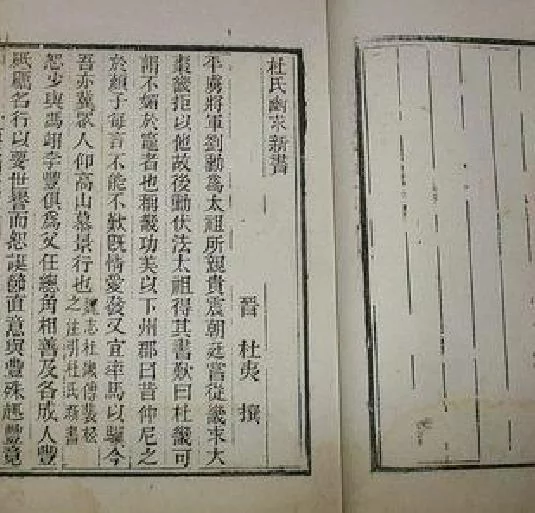 杜氏幽求新書
晉 杜夷 撰
平虜將軍劉勳爲太祖所親貴震朝廷嘗從畿求大
棗畿拒以他故後勳伏法太祖得其書歎曰杜畿可
謂不媚於竈者也稱畿功美以下州郡曰昔仲尼之
於顏子每言不能不歎既情愛發又宜率馬以驥今
吾亦冀眾人仰高山慕景行也魏志杜畿傳裴松之注引杜氏新書
恕少與馮翊李豐俱爲父任總角相善及各成人豐
砥礪名行以要世譽而恕誕節直意與豐殊趣豐竟